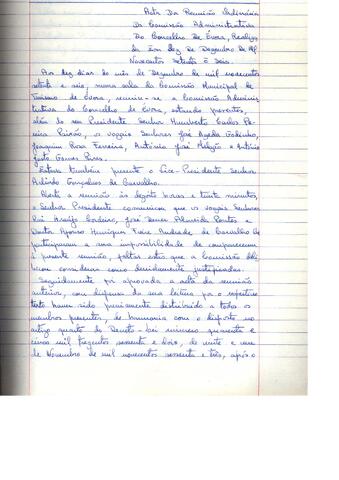 Acta Da Reunião Ordinária
Da Comissão Administrativa
Do Concelho De Évora, Realiza
da Em Dez De Dezembro De Mil
Novecentos Setenta e Seis.
Aos dez dias do mês de Dezembro de mil novecentos
setenta e seis, numa sala da Comissão Municipal de
Turismo de Évora, reuniu-se a Comissão Adminis
trativa do Concelho de Évora, estando presentes,
além do seu Presidente Senhor Humberto Carlos Pe
reira, os vogais Senhores José Godinho,
Joaquim Rosa Ferreira, António José e António
Justo Gomes Pires.
Esteve também presente o Vice-Presidente Senhor
Arlindo Gonçalves de Carvalho.
Aberta a reunião às dezoito horas e trinta minutos,
o Senhor Presidente comunicou que os vogais Senhores
Rui Araújo Cordeiro, José Almeida Pontes e
Doutor Afonso Henrique Andrade de Carvalho lhe
participaram a sua impossibilidade de comparecerem
à presente reunião, faltas estas que a Comissão deli
berou considerar como devidamente justificadas.
Seguidamente foi aprovada a acta da reunião
anterior, com dispensa da sua leitura por o respectivo
texto haver sido previamente distribuído a todos os
membros presentes, de harmonia com o disposto no
artigo quarto do Decreto-lei número quarenta e
cinco mil trezentos sessenta e dois, de vinte e um
de Novembro de mil novecentos sessenta e três, após o